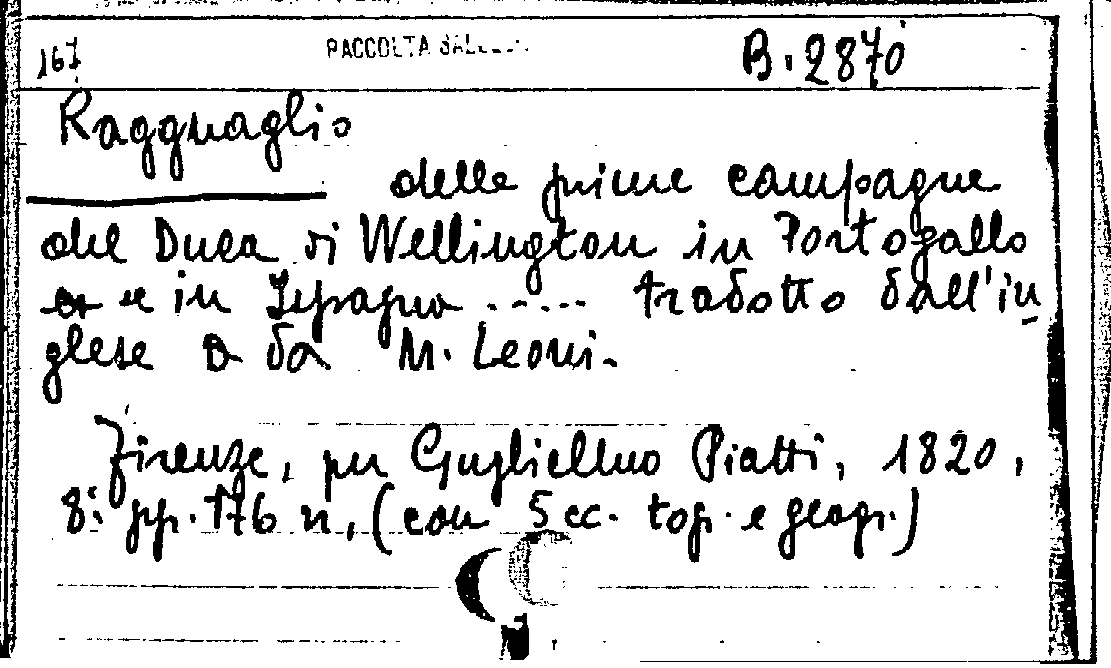 167 RACCOLTA B. 2870
Ragguaglio
delle prime campagne
del Duca di Wellington in Portogallo
e in Ispagna ..... tradotto dall'in
glese da M. Leoni.
Firenze, per Guglielmo Piatti, 1820,
8° pp. 176 n, (con 5 cc. top. e geogr.)